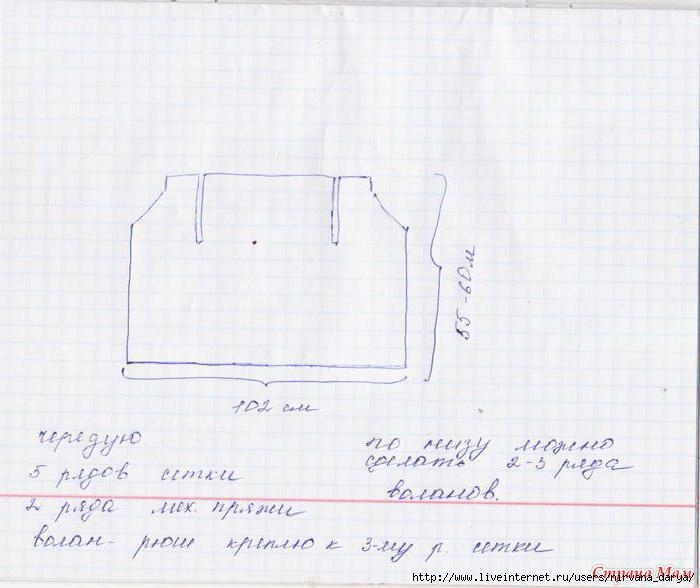 55-60 м
102 см
чередую
5 рядов сетки
2 ряда мех. пряжи
волан- рюш креплю к 3-му р. сетки
по низу можно
сделать 2-3 ряда
воланов.
Страна Мам
http://www.liveinternet.ru/users/nirvana_darya/